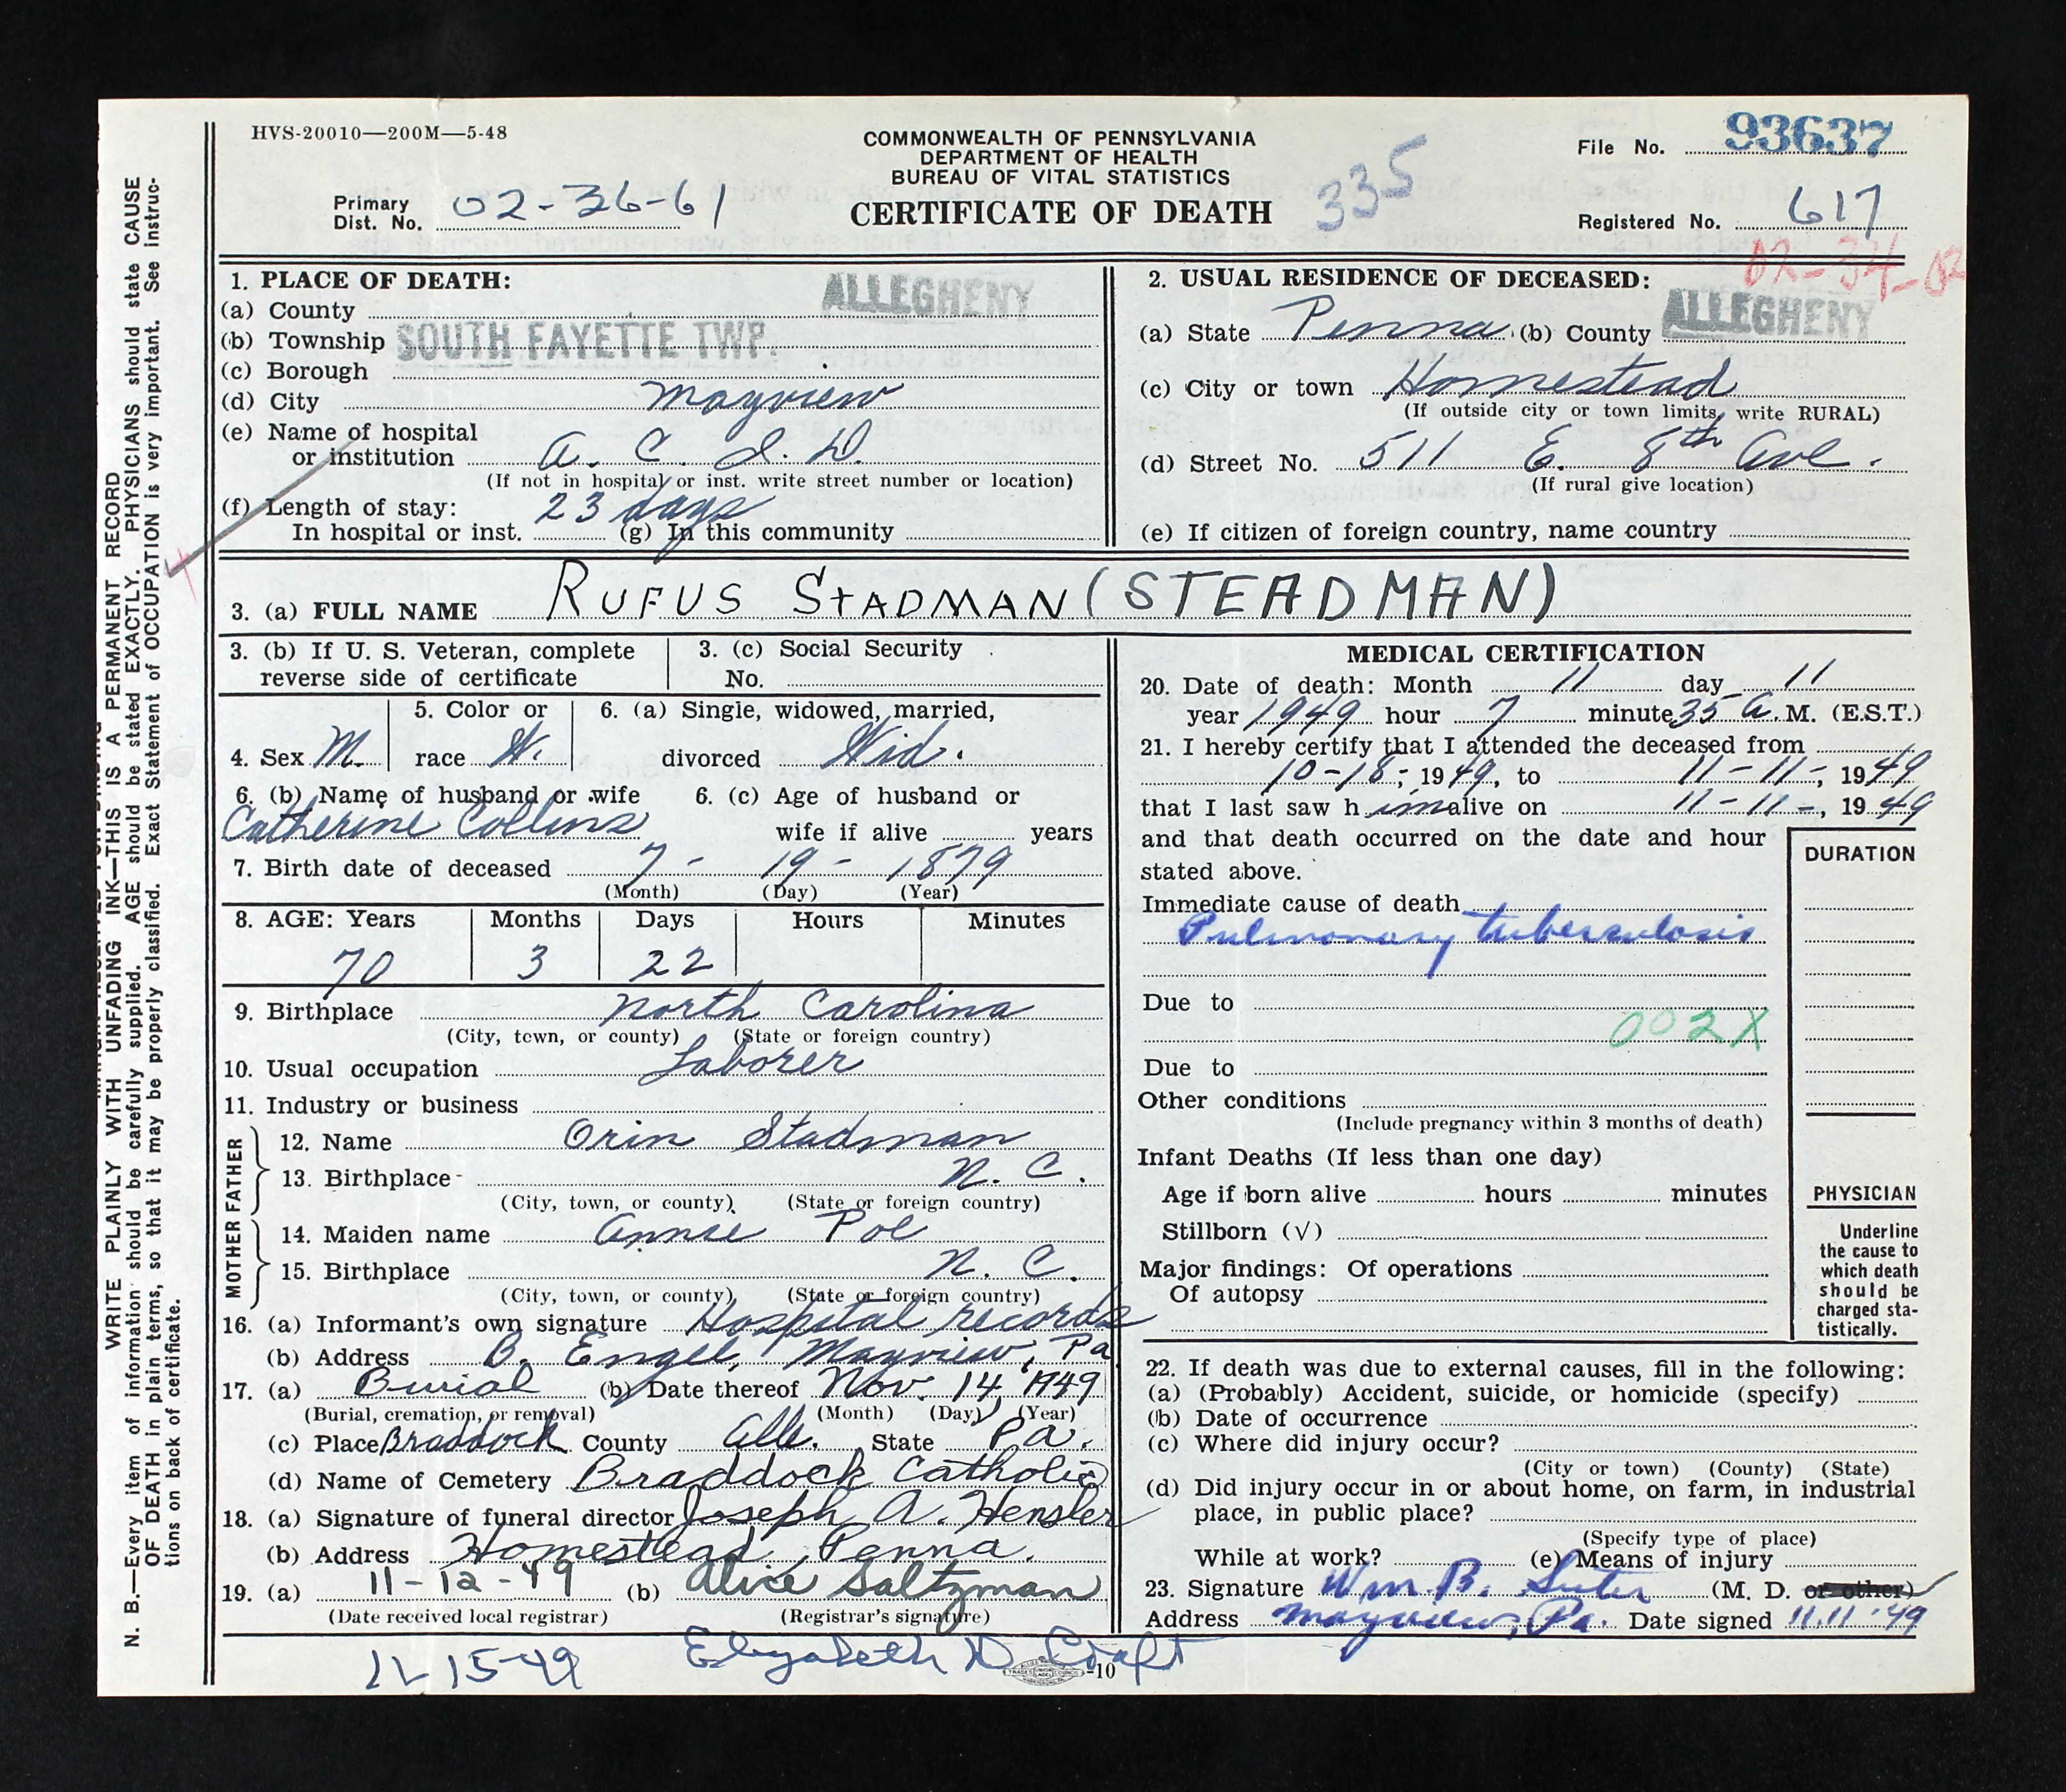 HVS-20010—200M—5-48
COMMONWEALTH OF PENNSYLVANIA
DEPARTMENT OF HEALTH
BUREAU OF VITAL STATISTICS
CERTIFICATE OF DEATH
335
File No. 93637
Primary
Dist. No. 02-36-61
Registered No. 617
02-34-02
1. PLACE OF DEATH:
(a) County ALLEGHENY
(b) Township SOUTH FAYETTE TWP.
(c) Borough
(d) City Mayview
(e) Name of hospital
or institution A. C. I. D.
(If not in hospital or inst. write street number or location)
(f) Length of stay: 23 days
In hospital or inst. (g) In this community
2. USUAL RESIDENCE OF DECEASED:
(a) State Penna (b) County ALLEGHENY
(c) City or town Homestead
(If outside city or town limits, write RURAL)
(d) Street No. 511 E. 8th Ave.
(If rural give location)
(e) If citizen of foreign country, name country
3. (a) FULL NAME RUFUS STADMAN (STEADMAN)
3. (b) If U. S. Veteran, complete
reverse side of certificate
3. (c) Social Security
No.
4. Sex M.
5. Color or
race W.
6. (a) Single, widowed, married,
divorced Wid.
6. (b) Name of husband or wife
Catherine Collins
6. (c) Age of husband or
wife if alive years
7. Birth date of deceased 7 - 19 - 1879
(Month) (Day) (Year)
8. AGE: Years Months Days Hours Minutes
70 3 22
9. Birthplace North Carolina
(City, town, or county) (State or foreign country)
10. Usual occupation Laborer
11. Industry or business
FATHER
12. Name Orin Stadman
13. Birthplace N. C.
(City, town, or county) (State or foreign country)
MOTHER
14. Maiden name Annie Poe
15. Birthplace N. C.
(City, town, or county) (State or foreign country)
16. (a) Informant's own signature Hospital records
(b) Address B. Engel, Mayview, Pa
17. (a) Burial (b) Date thereof Nov. 14 1949
(Burial, cremation, or removal) (Month) (Day) (Year)
(c) Place Braddock County Alle. State Pa.
(d) Name of Cemetery Braddock Catholic
18. (a) Signature of funeral director Joseph A. Hensler
(b) Address Homestead, Penna.
19. (a) 11-12-49 (b) Alice Saltzman
(Date received local registrar) (Registrar's signature)
MEDICAL CERTIFICATION
20. Date of death: Month 11 day 11
year 1949 hour 7 minute 35 A. M. (E.S.T.)
21. I hereby certify that I attended the deceased from
10-18-, 1949, to 11-11-, 1949
that I last saw h im alive on 11-11-, 1949
and that death occurred on the date and hour
stated above.
DURATION
Immediate cause of death
Pulmonary tuberculosis
Due to
002X
Due to
Other conditions
(Include pregnancy within 3 months of death)
Infant Deaths (If less than one day)
Age if born alive hours minutes
Stillborn (√)
Major findings: Of operations
Of autopsy
PHYSICIAN
Underline
the cause to
which death
should be
charged sta-
tistically.
22. If death was due to external causes, fill in the following:
(a) (Probably) Accident, suicide, or homicide (specify)
(b) Date of occurrence
(c) Where did injury occur?
(City or town) (County) (State)
(d) Did injury occur in or about home, on farm, in industrial
place, in public place?
(Specify type of place)
While at work? (e) Means of injury
23. Signature Wm. B. Suter (M. D. or other)
Address Mayview, Pa. Date signed 11.11.'49
11-15-49 Elizabeth
-10
WRITE PLAINLY WITH UNFADING INK—THIS IS A PERMANENT RECORD
N. B.—Every item of information should be carefully supplied. AGE should be stated EXACTLY. PHYSICIANS should state CAUSE
OF DEATH in plain terms, so that it may be properly classified. Exact Statement of OCCUPATION is very important. See instruc-
tions on back of certificate.